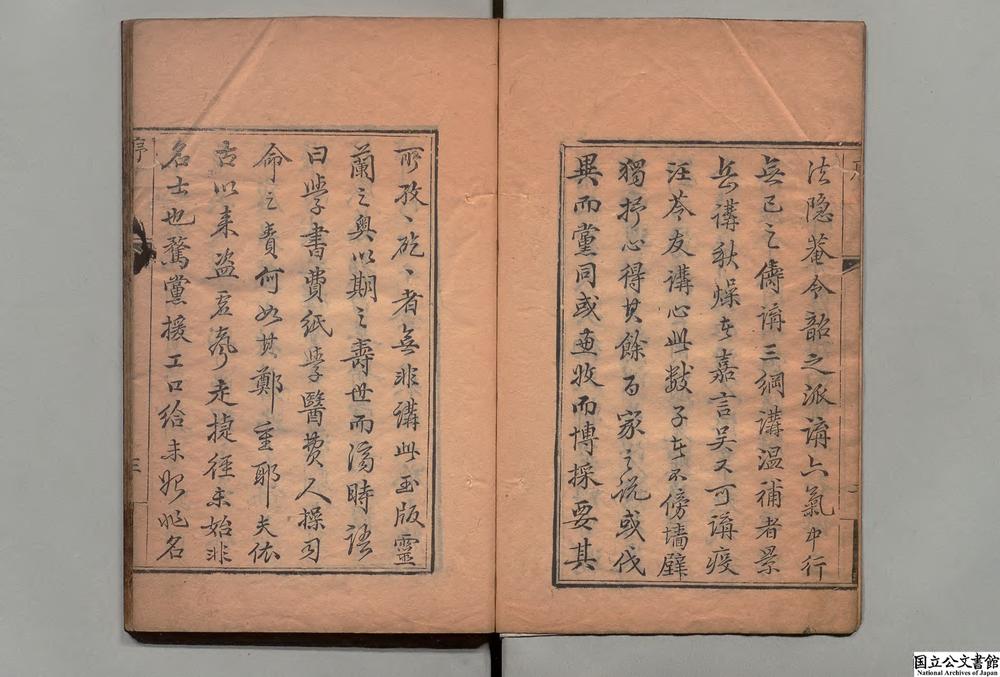 法隐菴令韶之派講六氣中行
無已之儔講三綱講温補者景
岳講秋燥者嘉言吴又可講疫
汪苓友講心此數子者不傍墙壁
獨抒心得其餘百家之说或伐
異而黨同或蒐牧而博採要其
所孜〻矻〻者無非講此玉版靈
蘭之奥以期之壽世而濟時語
曰學書費紙學醫費人操司
命之責何如其鄭重耶夫依
古以来盗名者走捷徑未始非
名士也鶩黨援工口給未始非名
序
三
国立公文書館
National Archives of Japan